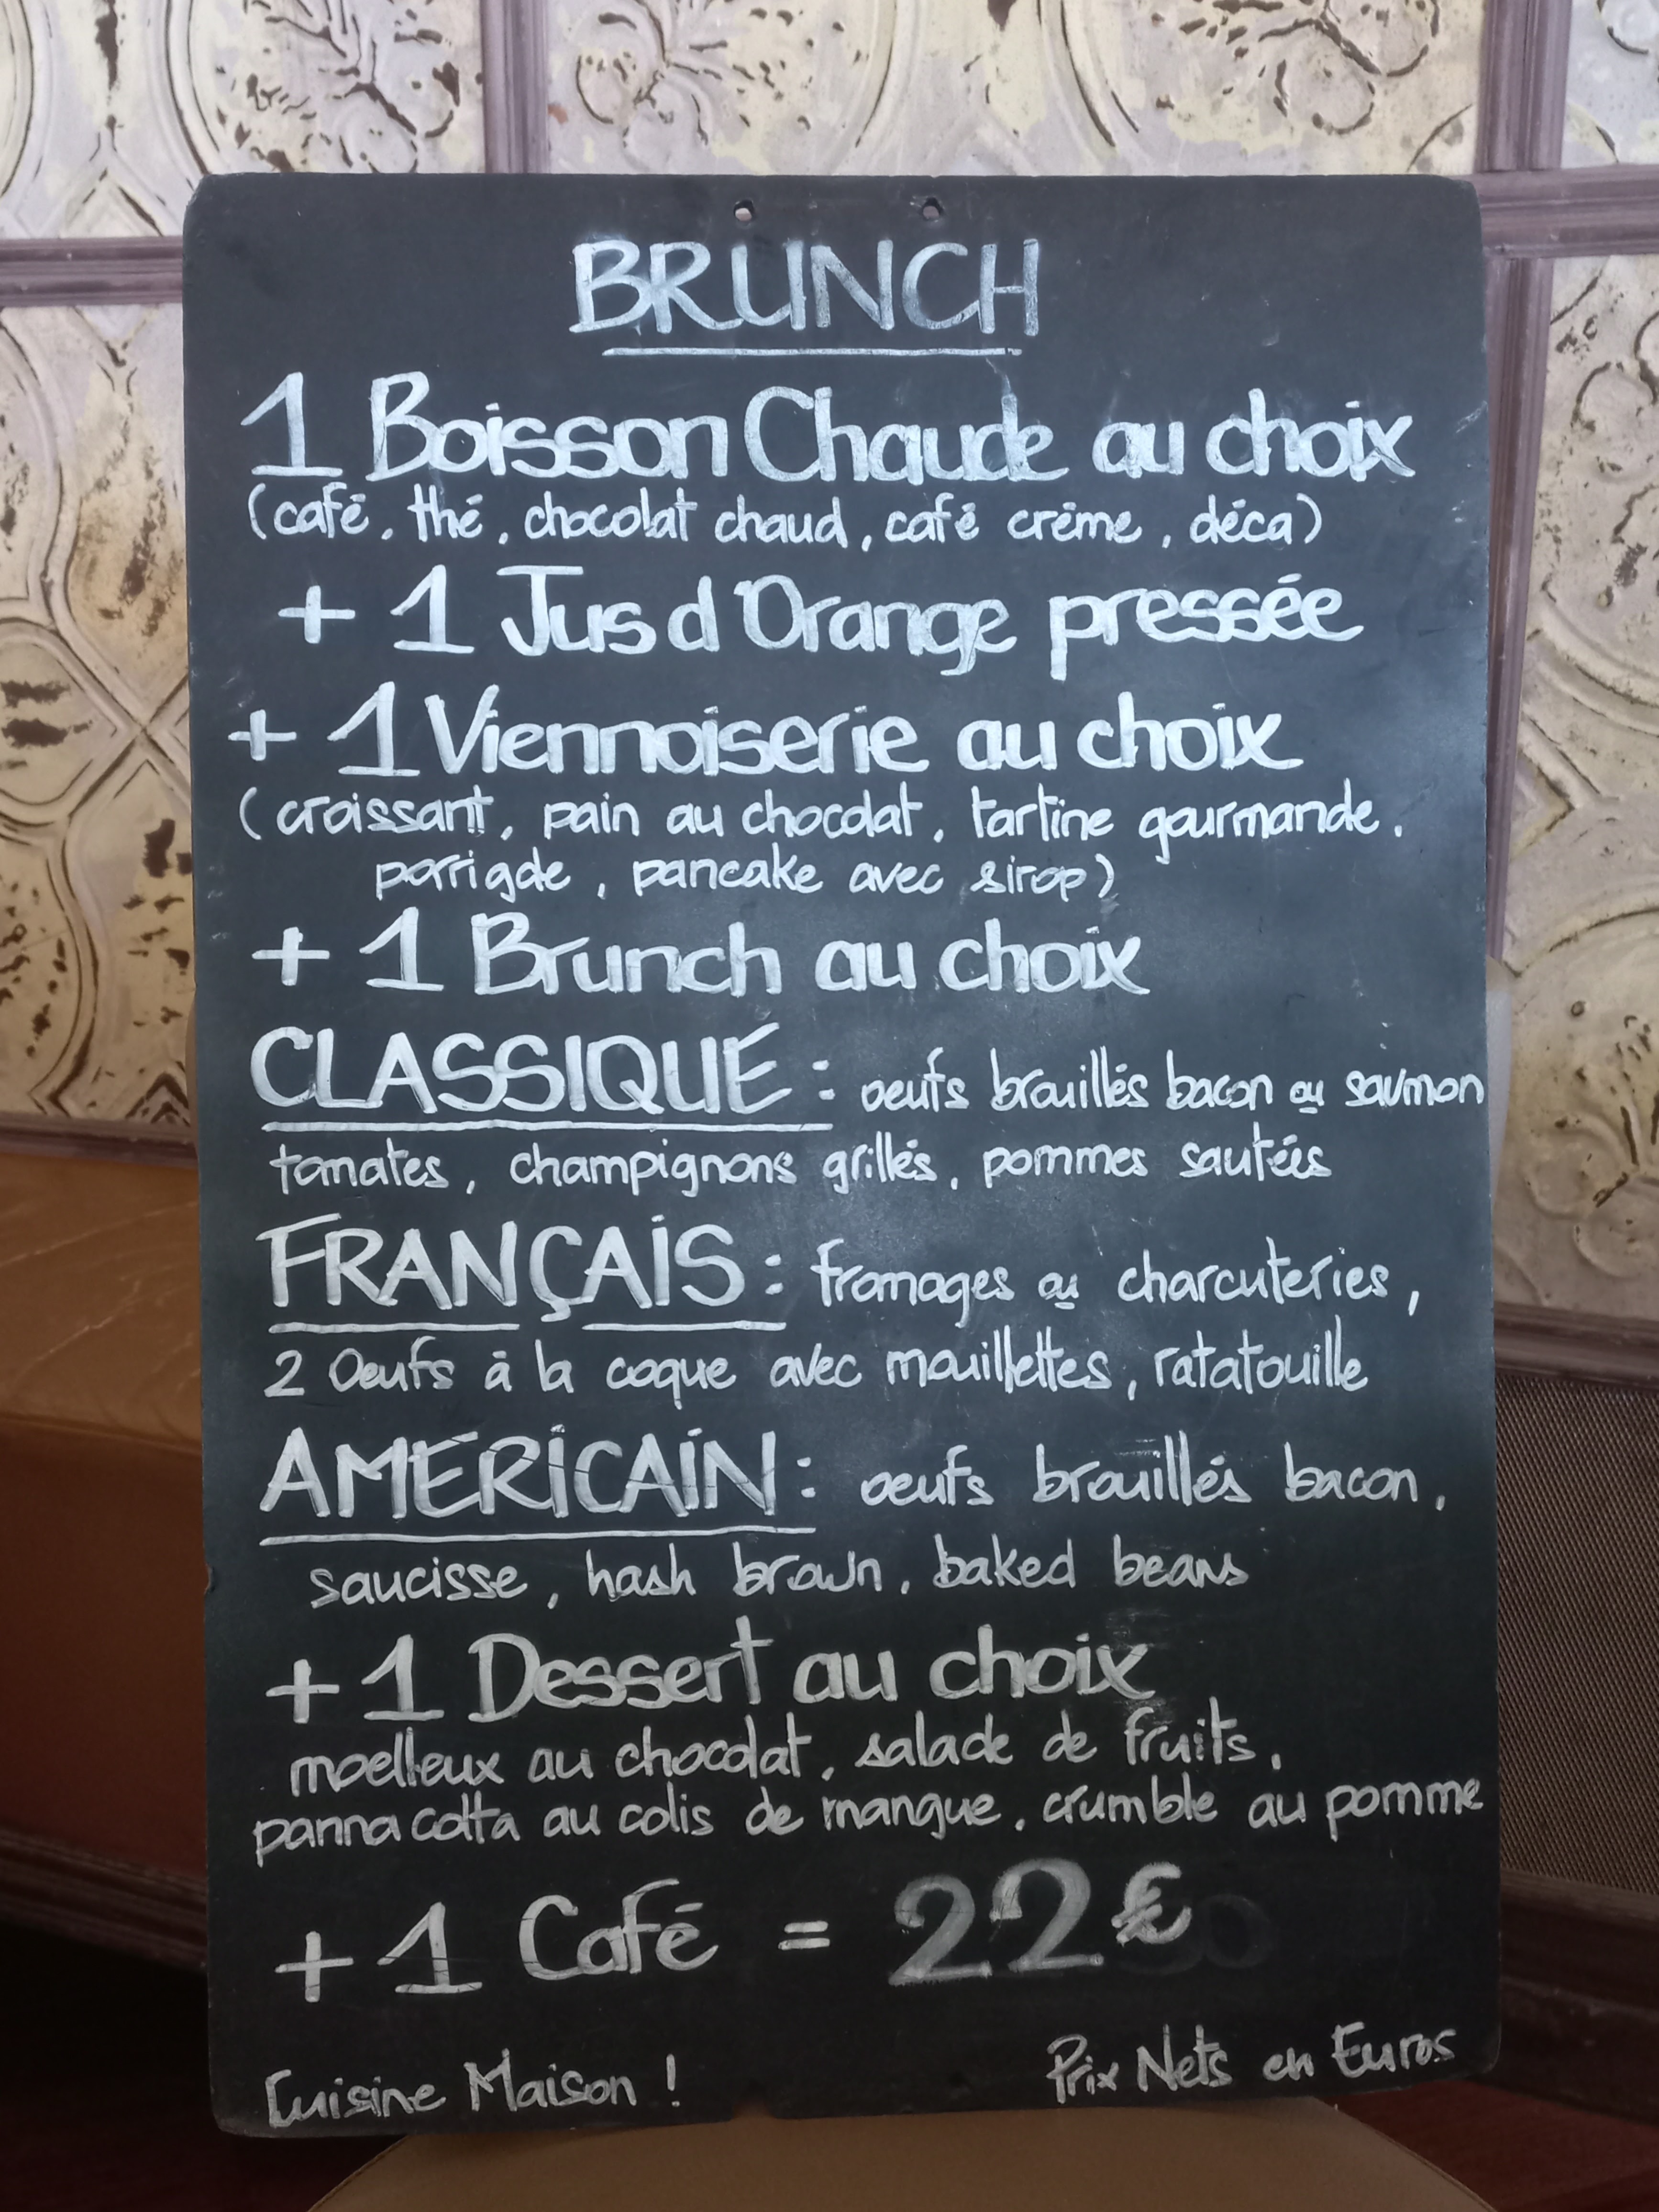 BRUNCH
1 Boisson Chaude au choix
(café, thé, chocolat chaud, café crème, déca)
+ 1 Jus d'Orange pressée
+ 1 Viennoiserie au choix
(croissant, pain au chocolat, tartine gourmande,
porrigde, pancake avec sirop)
+ 1 Brunch au choix
CLASSIQUE : oeufs brouillés bacon ou saumon
tomates, champignons grillés, pommes sautées
FRANÇAIS : fromages ou charcuteries,
2 Oeufs à la coque avec mouillettes, ratatouille
AMERICAIN : oeufs brouillés bacon,
saucisse, hash brown, baked beans
+ 1 Dessert au choix
moelleux au chocolat, salade de fruits,
panna cotta au colis de mangue, crumble au pomme
+ 1 Café = 22€
Cuisine Maison !
Prix Nets en Euros